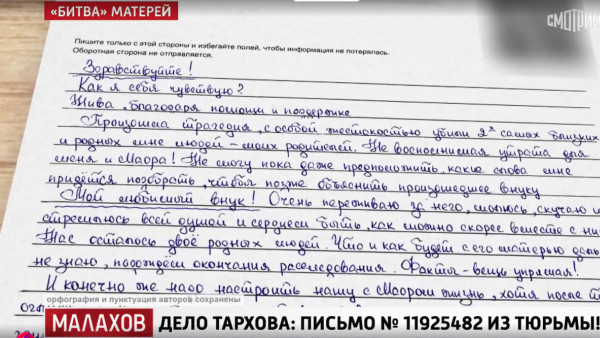 «БИТВА» МАТЕРЕЙ
СМОТРИМ
Пишите только с этой стороны и избегайте полей, чтобы информация не потерялась.
Оборотная сторона не отправляется.
Здравствуйте!
Как я себя чувствую?
Жива, благодаря помощи и поддержке
Произошла трагедия, с особой жестокостью убили 2х самых близких
и родных мне людей – моих родителей. Не восполнимая утрата для
меня и Маора! Не могу пока даже предположить, какие слова мне
придётся подобрать, чтобы позже объяснить произошедшее внуку
Мой любимый внук! Очень переживаю за него, молюсь, скучаю и
стремлюсь всей душой и сердцем быть, как можно скорее вместе с ни
Нас осталось двоё родных людей. Что и как будет с его матерью даль
не знаю, подождём окончания расследования. Факты – вещь упрямая!
И конечно же надо настроить нашу с Маором жизнь, хотя после т
орфография и пунктуация авторов сохранены
МАЛАХОВ
ДЕЛО ТАРХОВА: ПИСЬМО № 11925482 ИЗ ТЮРЬМЫ!